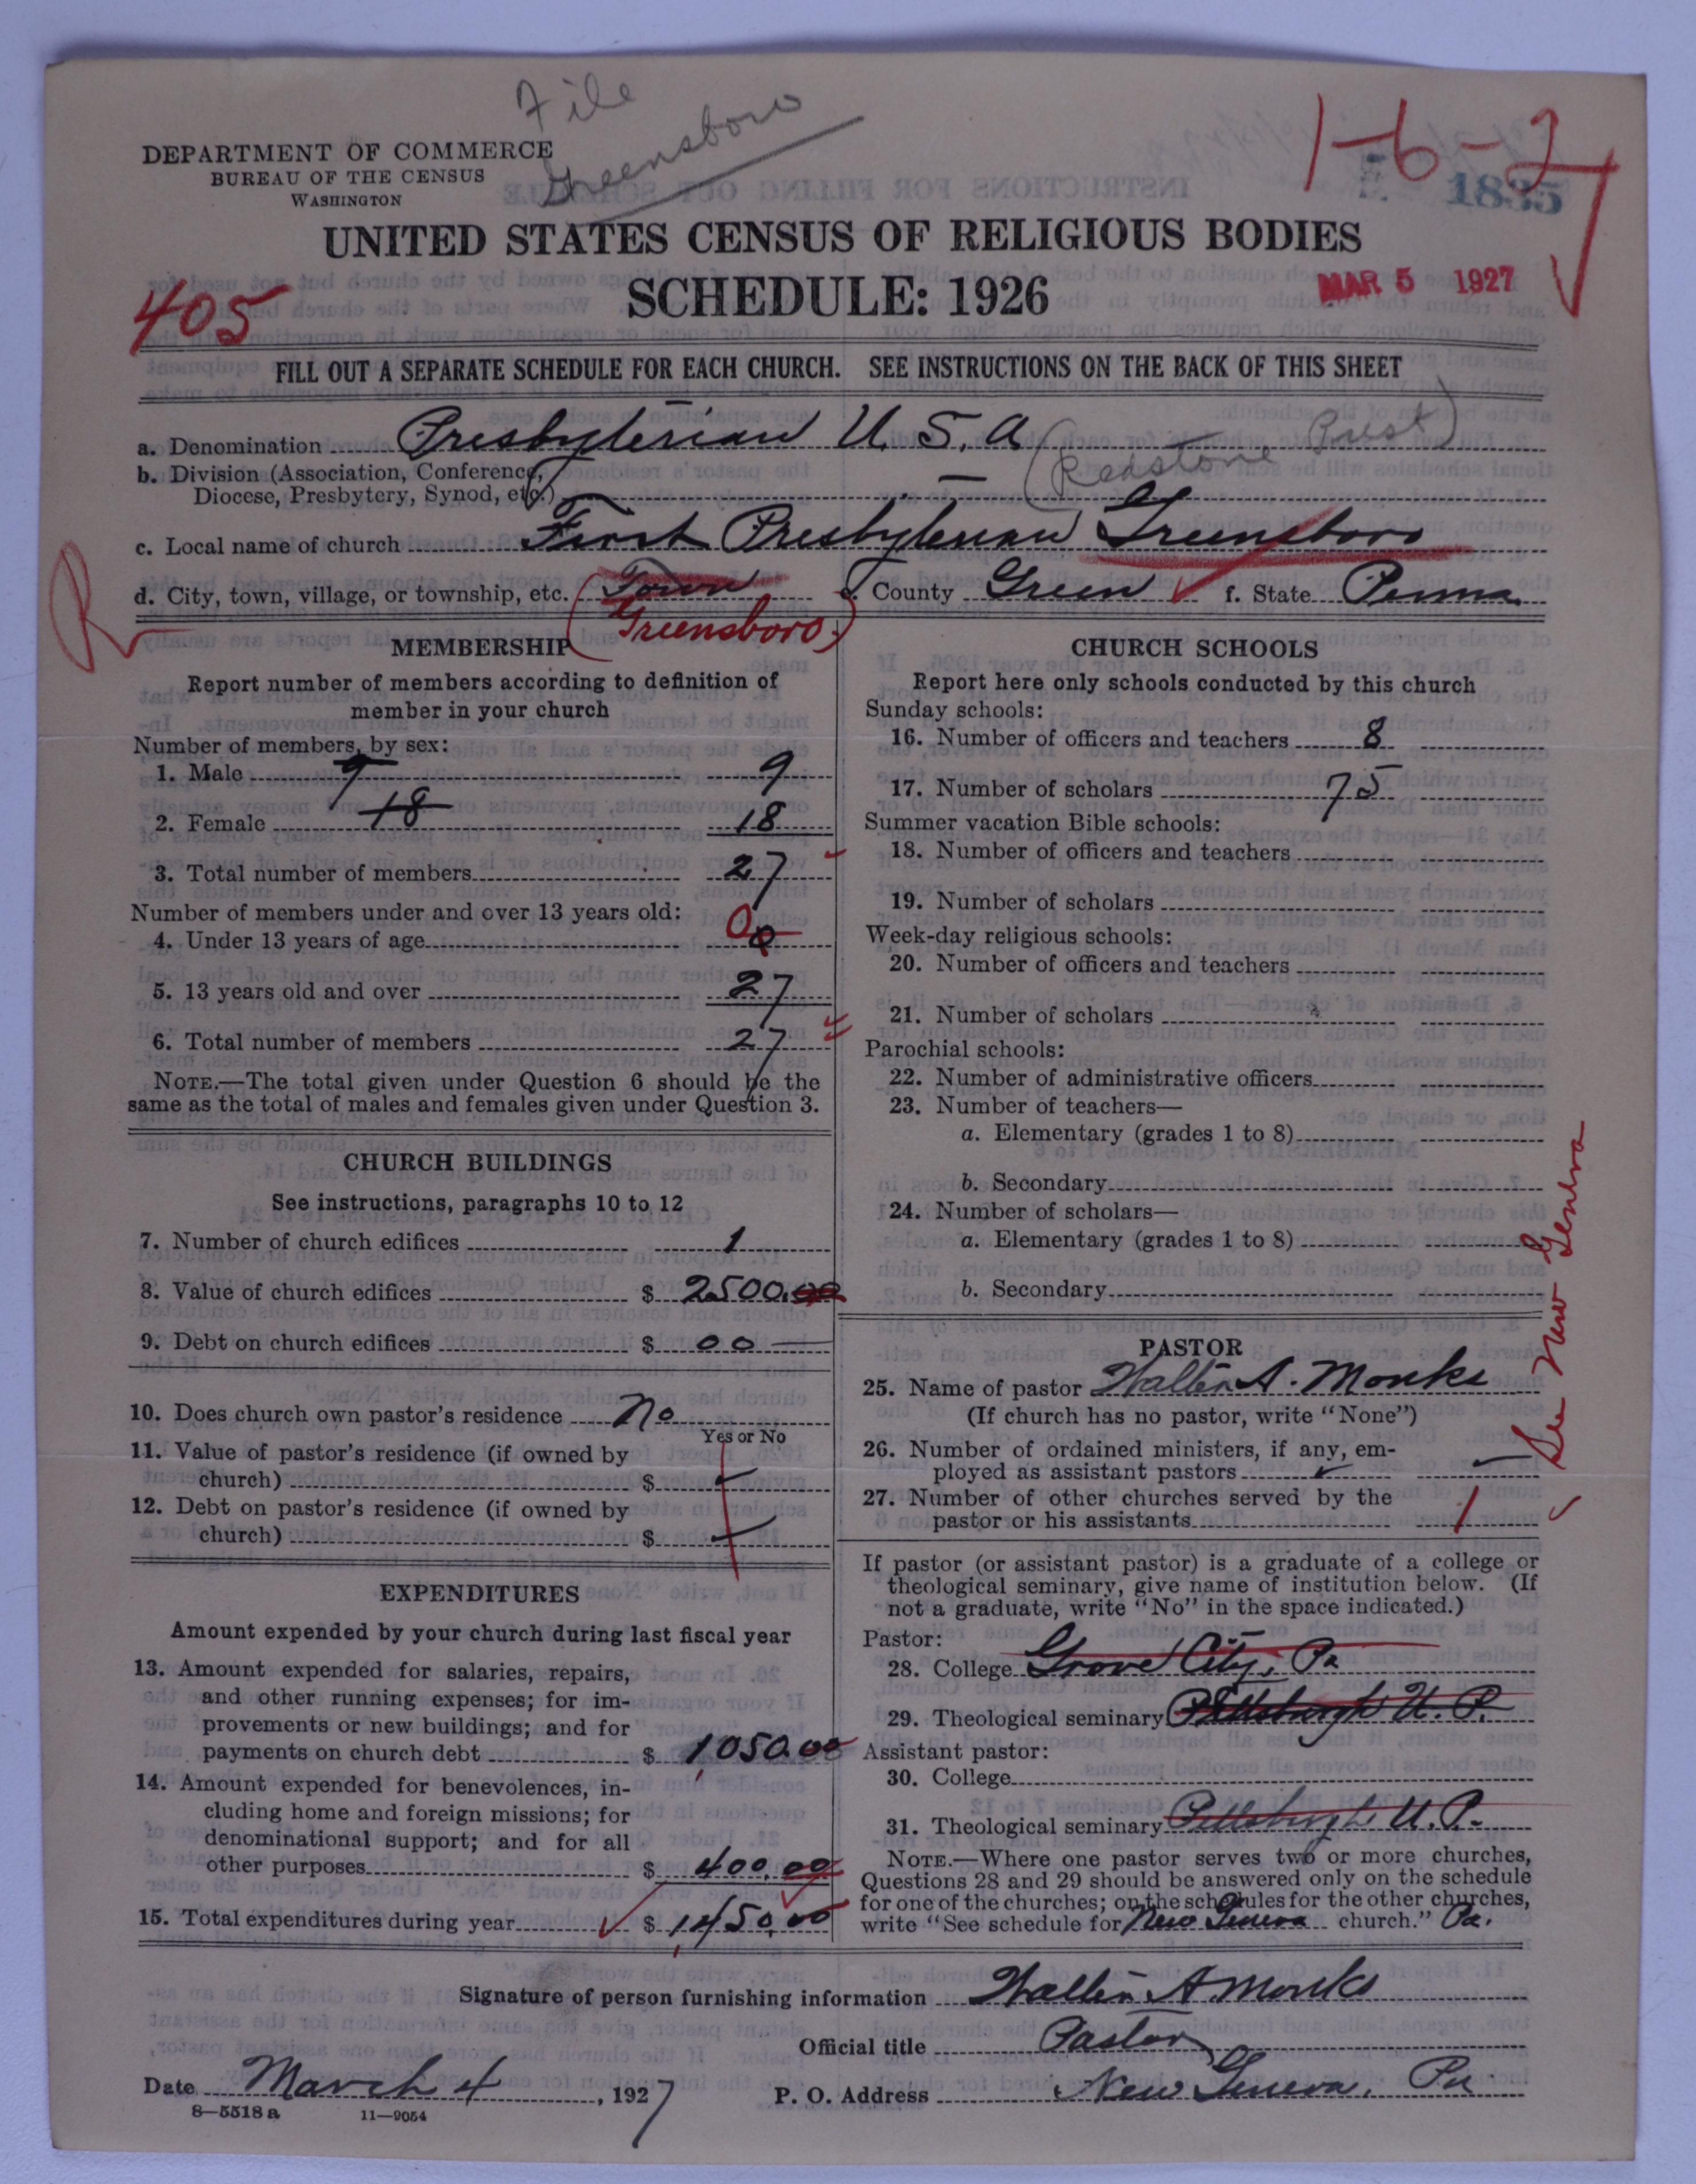 File
Greensboro
DEPARTMENT OF COMMERCE
BUREAU OF THE CENSUS
WASHINGTON
1-6-2
1835
UNITED STATES CENSUS OF RELIGIOUS BODIES
SCHEDULE: 1926
MAR 5 1927
405
FILL OUT A SEPARATE SCHEDULE FOR EACH CHURCH. SEE INSTRUCTIONS ON THE BACK OF THIS SHEET
a. Denomination Presbyterian U. S. A.
(Redstone Prest)
b. Division (Association, Conference,
Diocese, Presbytery, Synod, etc.) —
c. Local name of church First Presbyterian Greensboro
R
d. City, town, village, or township, etc. Town e. County Green f. State Penna
(Greensboro.)
MEMBERSHIP
Report number of members according to definition of
member in your church
Number of members, by sex:
1. Male 9 9
2. Female 18 18
3. Total number of members 27
Number of members under and over 13 years old:
4. Under 13 years of age 0 0
5. 13 years old and over 27
6. Total number of members 27
NOTE.—The total given under Question 6 should be the
same as the total of males and females given under Question 3.
CHURCH BUILDINGS
See instructions, paragraphs 10 to 12
7. Number of church edifices 1
8. Value of church edifices $ 2500.00
9. Debt on church edifices $ 00
10. Does church own pastor's residence No
Yes or No
11. Value of pastor's residence (if owned by
church) $ —
12. Debt on pastor's residence (if owned by
church) $ —
EXPENDITURES
Amount expended by your church during last fiscal year
13. Amount expended for salaries, repairs,
and other running expenses; for im-
provements or new buildings; and for
payments on church debt $ 1,050.00
14. Amount expended for benevolences, in-
cluding home and foreign missions; for
denominational support; and for all
other purposes $ 400.00
15. Total expenditures during year $ 1,450.00
CHURCH SCHOOLS
Report here only schools conducted by this church
Sunday schools:
16. Number of officers and teachers 8
17. Number of scholars 75
Summer vacation Bible schools:
18. Number of officers and teachers
19. Number of scholars
Week-day religious schools:
20. Number of officers and teachers
21. Number of scholars
Parochial schools:
22. Number of administrative officers
23. Number of teachers—
a. Elementary (grades 1 to 8)
b. Secondary
24. Number of scholars—
a. Elementary (grades 1 to 8)
b. Secondary
See New Geneva
PASTOR
25. Name of pastor Walter A. Monks
(If church has no pastor, write "None")
26. Number of ordained ministers, if any, em-
ployed as assistant pastors —
27. Number of other churches served by the
pastor or his assistants 1
If pastor (or assistant pastor) is a graduate of a college or
theological seminary, give name of institution below. (If
not a graduate, write "No" in the space indicated.)
Pastor:
28. College Grove City, Pa
29. Theological seminary Pittsburgh U. P.
Assistant pastor:
30. College
31. Theological seminary Pittsburgh U. P.
NOTE.—Where one pastor serves two or more churches,
Questions 28 and 29 should be answered only on the schedule
for one of the churches; on the schedules for the other churches,
write "See schedule for New Geneva church." Pa.
Signature of person furnishing information Walter A Monks
Official title Pastor
Date March 4, 1927 P. O. Address New Geneva, Pa
8—5518 a 11—9054